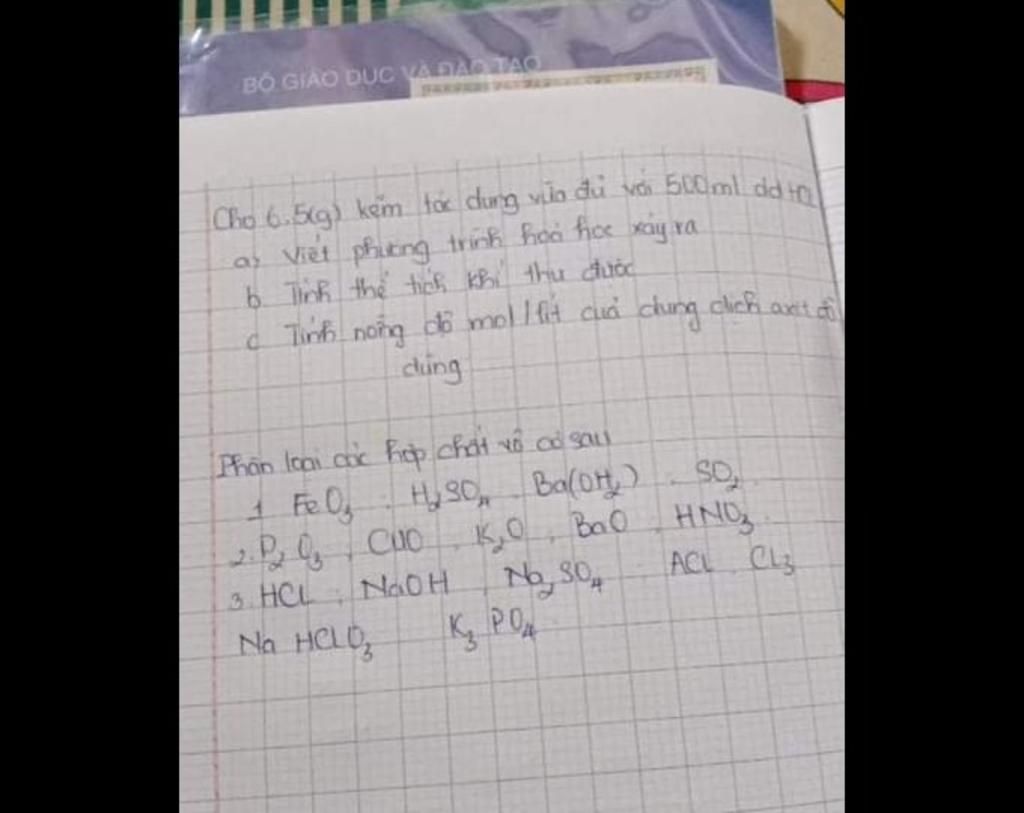 BỘ GIÁO DỤC VÀ ĐÀO TẠO
Cho 6.5(g) kẽm tác dụng vừa đủ với 500ml dd
a) Viết phương trình hoá học xảy ra
b Tính thể tích khí thu được
c Tính nồng độ mol/lít của dung dịch axit đã
dùng
Phân loại các hợp chất vô cơ sau
1 FeO₃ . H₂SO₄ . Ba(OH₂) . SO₂
2. P₂O₃ , CUO . K₂O , BaO . HNO₃
3. HCL . NaOH , Na₂SO₄ . ACL CL₃
Na HCLO₃ K₃ PO₄